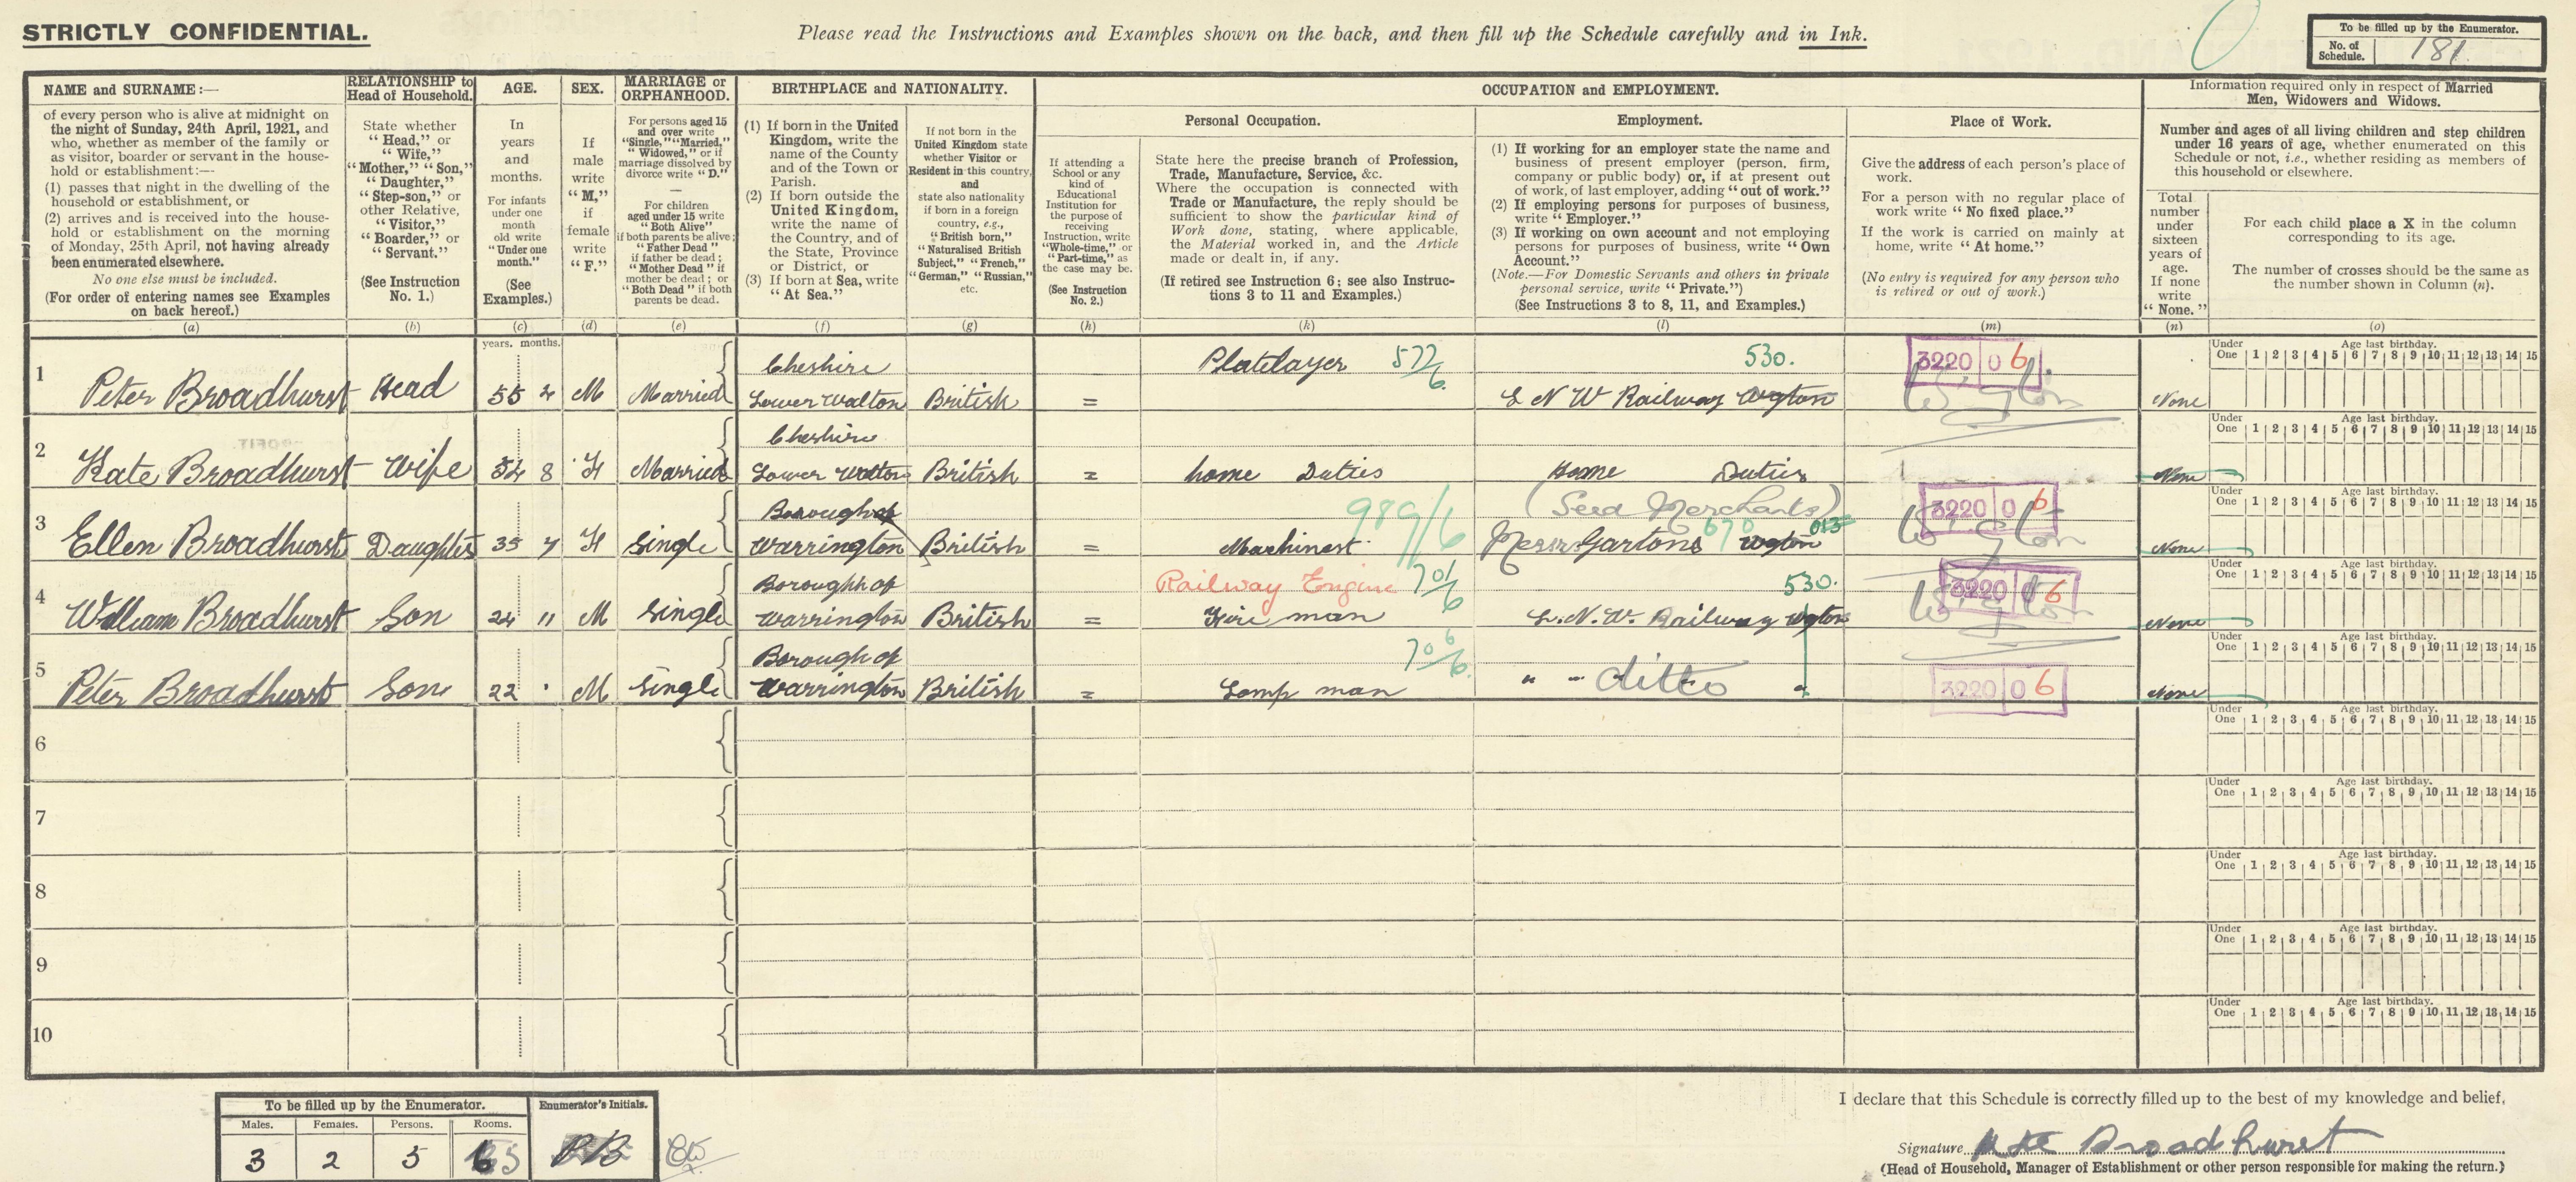 STRICTLY CONFIDENTIAL.
Please read the Instructions and Examples shown on the back, and then fill up the Schedule carefully and in Ink.
To be filled up by the Enumerator.
No. of Schedule. 181
NAME and SURNAME:—
of every person who is alive at midnight on
the night of Sunday, 24th April, 1921, and
who, whether as member of the family or
as visitor, boarder or servant in the house-
hold or establishment:—
(1) passes that night in the dwelling of the
household or establishment, or
(2) arrives and is received into the house-
hold or establishment on the morning
of Monday, 25th April, not having already
been enumerated elsewhere.
No one else must be included.
(For order of entering names see Examples
on back hereof.)
(a)
RELATIONSHIP to
Head of Household.
State whether
"Head," or
"Wife,"
"Mother," "Son,"
"Daughter,"
"Step-son," or
other Relative,
"Visitor,"
"Boarder," or
"Servant."
(See Instruction
No. 1.)
(b)
AGE.
In
years
and
months.
For infants
under one
month
old write
"Under one
month."
(See
Examples.)
(c)
SEX.
If
male
write
"M,"
if
female
write
"F."
(d)
MARRIAGE or
ORPHANHOOD.
For persons aged 15
and over write
"Single," "Married,"
"Widowed," or if
marriage dissolved by
divorce write "D."
—
For children
aged under 15 write
"Both Alive"
if both parents be alive;
"Father Dead"
if father be dead;
"Mother Dead" if
mother be dead; or
"Both Dead" if both
parents be dead.
(e)
BIRTHPLACE and NATIONALITY.
(1) If born in the United
Kingdom, write the
name of the County
and of the Town or
Parish.
(2) If born outside the
United Kingdom,
write the name of
the Country, and of
the State, Province
or District, or
(3) If born at Sea, write
"At Sea."
(f)
If not born in the
United Kingdom state
whether Visitor or
Resident in this country,
and
state also nationality
if born in a foreign
country, e.g.,
"British born,"
"Naturalised British
Subject," "French,"
"German," "Russian,"
etc.
(g)
OCCUPATION and EMPLOYMENT.
If attending a
School or any
kind of
Educational
Institution for
the purpose of
receiving
Instruction, write
"Whole-time," or
"Part-time," as
the case may be.
(See Instruction
No. 2.)
(h)
Personal Occupation.
State here the precise branch of Profession,
Trade, Manufacture, Service, &c.
Where the occupation is connected with
Trade or Manufacture, the reply should be
sufficient to show the particular kind of
Work done, stating, where applicable,
the Material worked in, and the Article
made or dealt in, if any.
(If retired see Instruction 6; see also Instruc-
tions 3 to 11 and Examples.)
(k)
Employment.
(1) If working for an employer state the name and
business of present employer (person, firm,
company or public body) or, if at present out
of work, of last employer, adding "out of work."
(2) If employing persons for purposes of business,
write "Employer."
(3) If working on own account and not employing
persons for purposes of business, write "Own
Account."
(Note.—For Domestic Servants and others in private
personal service, write "Private.")
(See Instructions 3 to 8, 11, and Examples.)
(l)
Place of Work.
Give the address of each person's place of
work.
For a person with no regular place of
work write "No fixed place."
If the work is carried on mainly at
home, write "At home."
(No entry is required for any person who
is retired or out of work.)
(m)
Information required only in respect of Married
Men, Widowers and Widows.
Number and ages of all living children and step children
under 16 years of age, whether enumerated on this
Schedule or not, i.e., whether residing as members of
this household or elsewhere.
Total
number
under
sixteen
years of
age.
If none
write
"None."
(n)
For each child place a X in the column
corresponding to its age.
The number of crosses should be the same as
the number shown in Column (n).
(o)
years. months.
Under One Age last birthday. 1 2 3 4 5 6 7 8 9 10 11 12 13 14 15
Cheshire Platelayer 572/6 530. 3220 06
1 Peter Broadhurst Head 55 4 M Married Lower Walton British = L N W Railway Wgton W'gton None
Under One Age last birthday. 1 2 3 4 5 6 7 8 9 10 11 12 13 14 15
Cheshire
2 Kate Broadhurst Wife 54 8 F Married Lower Walton British = home Duties Home Duties None
Under One Age last birthday. 1 2 3 4 5 6 7 8 9 10 11 12 13 14 15
Borough of 989/6 (Seed Merchants) 3220 06
3 Ellen Broadhurst Daughter 35 7 F Single Warrington British = Machinest Messrs Gartons 670 Wgton 013 W'gton None
Under One Age last birthday. 1 2 3 4 5 6 7 8 9 10 11 12 13 14 15
Boroughh of Railway Engine 701/6 530. 3220 06
4 William Broadhurst Son 24 11 M Single Warrington British = Fire man L.N.W. Railway Wgton W'gton None
Under One Age last birthday. 1 2 3 4 5 6 7 8 9 10 11 12 13 14 15
Borough of 706/6
5 Peter Broadhurst Son 22 M Single Warrington British = Lamp man " " ditto " 3220 06 None
6 Under One Age last birthday. 1 2 3 4 5 6 7 8 9 10 11 12 13 14 15
7 Under One Age last birthday. 1 2 3 4 5 6 7 8 9 10 11 12 13 14 15
8 Under One Age last birthday. 1 2 3 4 5 6 7 8 9 10 11 12 13 14 15
9 Under One Age last birthday. 1 2 3 4 5 6 7 8 9 10 11 12 13 14 15
10 Under One Age last birthday. 1 2 3 4 5 6 7 8 9 10 11 12 13 14 15
To be filled up by the Enumerator. Enumerator's Initials.
Males. Females. Persons. Rooms.
3 2 5 5
I declare that this Schedule is correctly filled up to the best of my knowledge and belief,
Signature Broadhurst
(Head of Household, Manager of Establishment or other person responsible for making the return.)